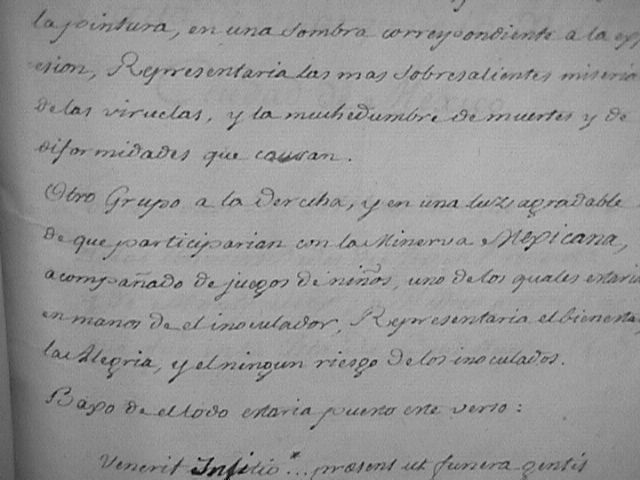 la pintura, en una sombra correspondiente a la exp
esion, Representaria las mas sobresalientes miseria
de las viruelas, y la muchedumbre de muertes y de
diformidades que causan.
Otro Grupo a la derecha, y en una luz agradable
de que participarian con la Minerva Mexicana,
acompañado de juegos de niños, uno de los quales estaria
en manos de el inoculador, Representaria el bienesta
la Alegria, y el ningun riesgo de los inoculados.
Baxo de el todo estaria puesto este verso:
Venerit Insitio*... præsent ut funera gentis